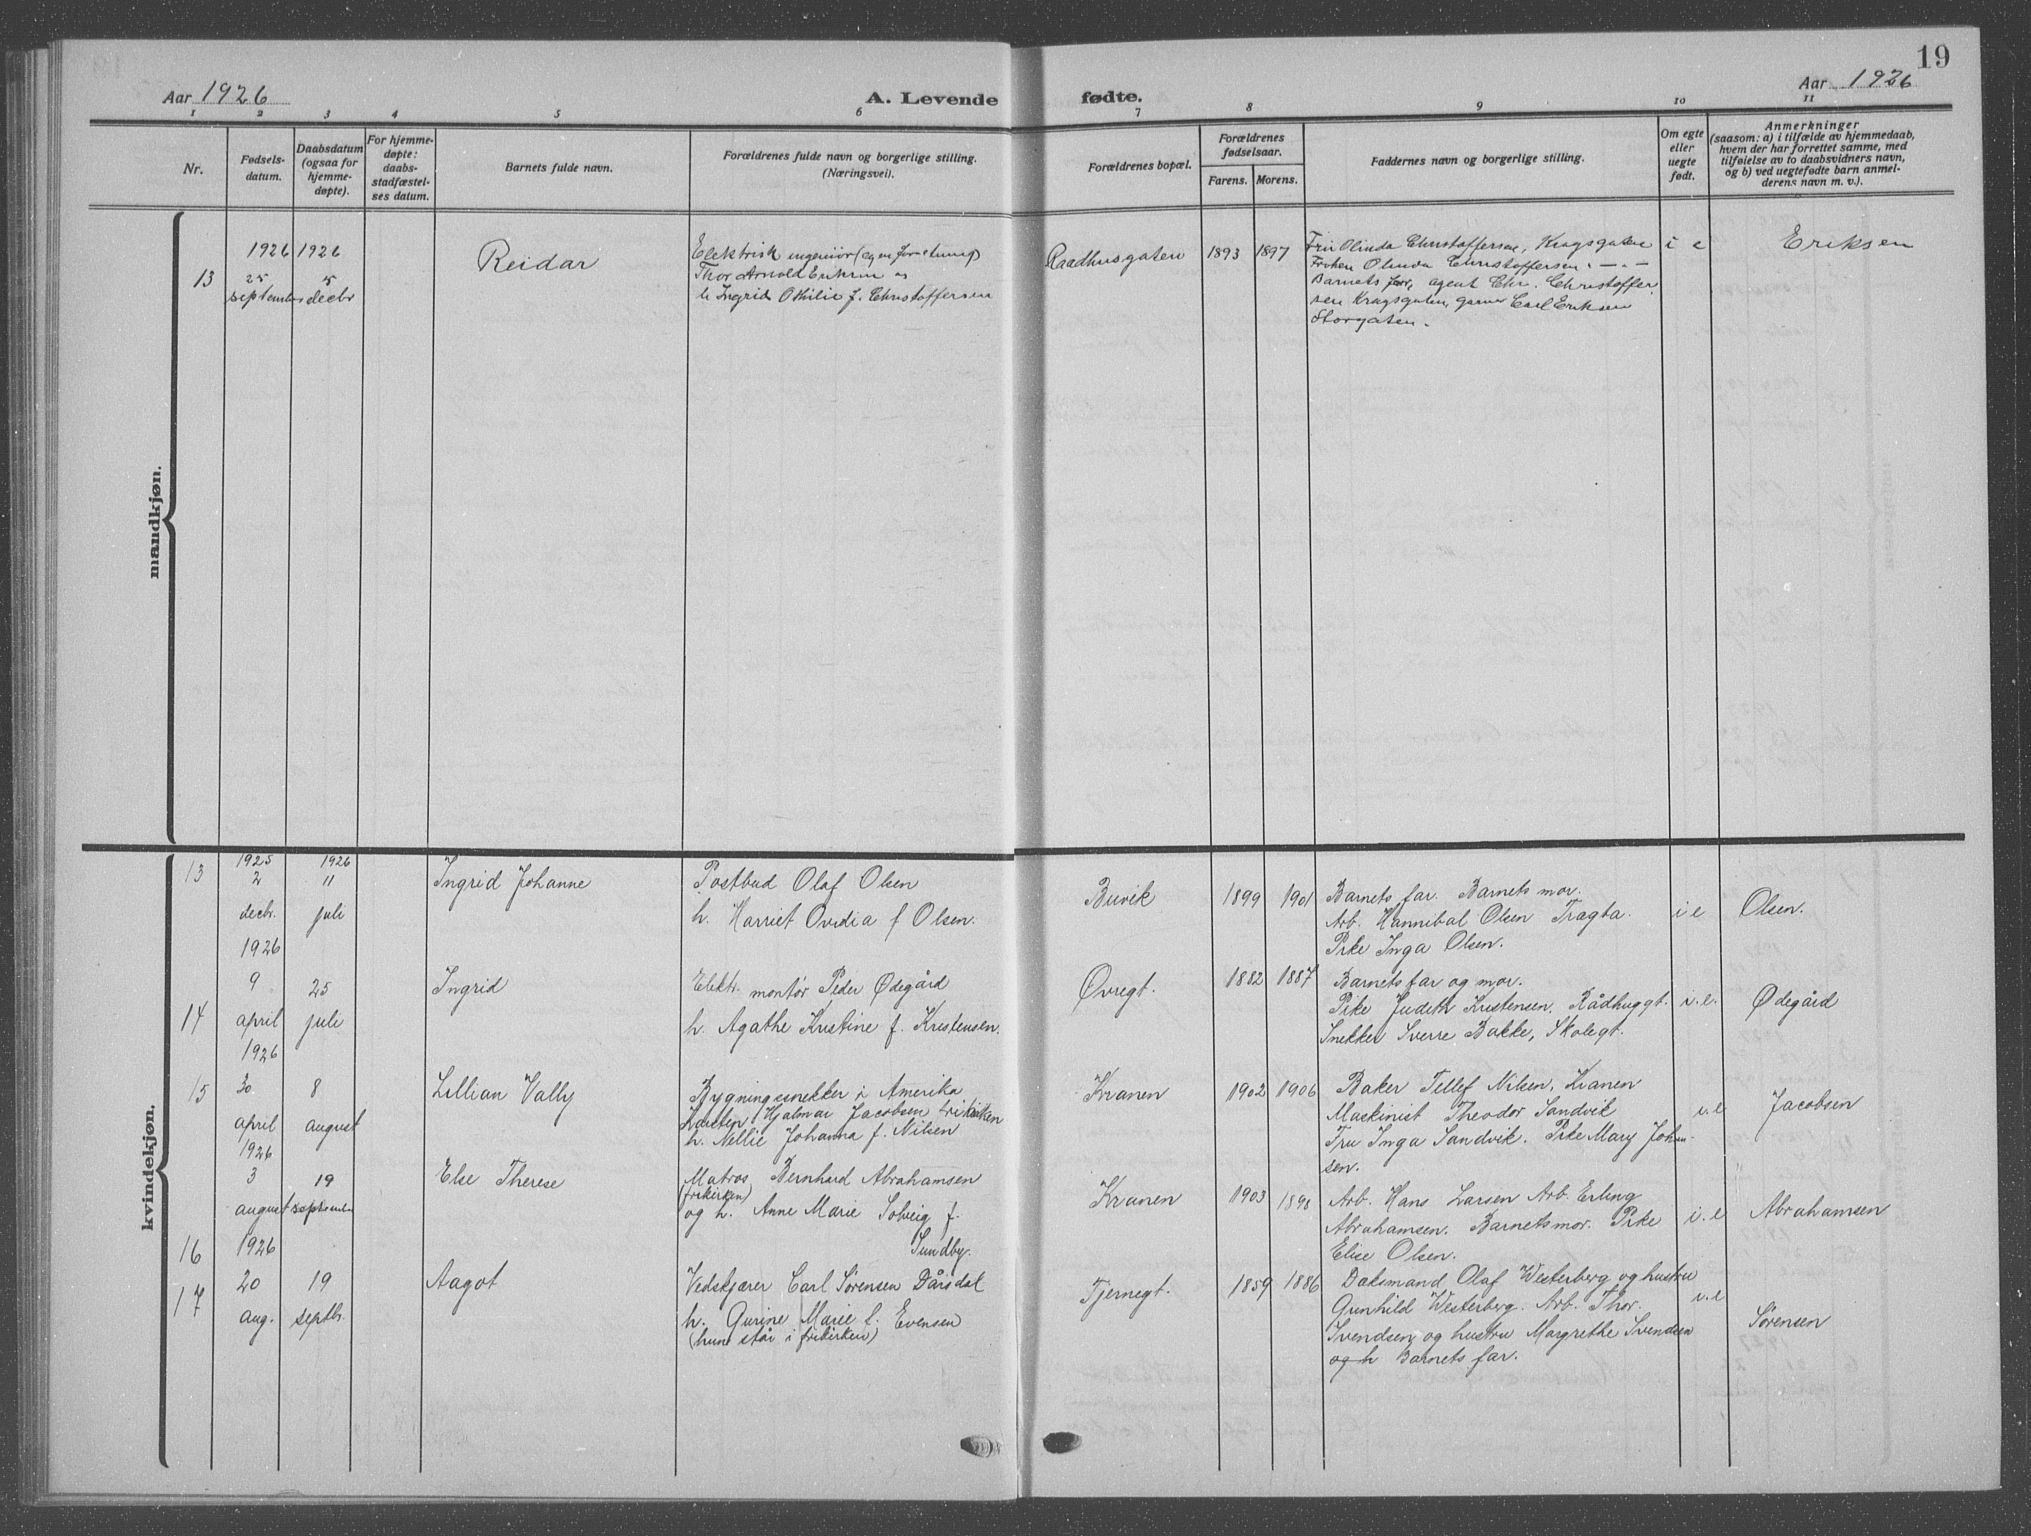 19
Aar 1926
A. Levende
fødte.
Aar 1926
1 2 3 4 5 6 7 8 9 10 11
Nr.
Fødsels-
datum.
Daabsdatum
(ogsaa for
hjemme-
døpte).
For hjemme-
døpte:
daabs-
stadfæstel-
ses datum.
Barnets fulde navn.
Forældrenes fulde navn og borgerlige stilling.
(Næringsvei).
Forældrenes bopæl.
Forældrenes
fødselsaar.
Farens. Morens.
Faddernes navn og borgerlige stilling.
Om egte
eller
uegte
født.
Anmerkninger
(saasom: a) i tilfælde av hjemmedaab,
hvem der har forrettet samme, med
tilføielse av to daabsvidners navn,
og b) ved uegtefødte barn anmel-
derens navn m. v.).
mandkjøn.
13
1926
25
september
1926
5
decbr
Reidar
Elektrisk ingeniør (egen forretning)
Thor Arnold Eriksen og
h. Ingrid Othilie f. Christoffersen
Raadhusgaten
1893
1897
Fru Olinda Christoffersen, Kragsgaten
Frøken Olinda Christoffersen. - — . -
Barnets far, agent Chr. Christoffer
sen Kragsgaten, Carl Eriksen
Storgaten.
i e
Eriksen
kvindekjøn.
13
1925
2
decbr.
1926
11
juli
Ingrid Johanne
Postbud Olaf Olsen
h. Harriet Ovidia f Olsen.
Buvik
1899
1901
Barnets far. Barnets mor.
Arb. Hannibal Olsen Tragta.
Pike Inga Olsen.
i e
Olsen.
14
1926
9
april
25
juli
Ingrid
Elektr. montør Peder Ødegård
h. Agathe Kristine f. Kristensen.
Øvregt.
1882
1887
Barnets far og mor.
Pike Judith Kristensen, Rådhusgt.
Snekker Sverre Bakke, Skolegt.
i.e.
Ødegård
15
1926
30
april
8
august
Lillian Vally
Bygningssnekker i Amerika
Karsten Hjalmar Jacobsen frikirken
h. Nellie Johanna f. Nilsen
Kranen
1902
1906
Baker Tellef Nilsen, Kranen
Maskinist Theodor Sandvik
Fru Inga Sandvik. Pike Mary Johan-
sen.
i.e
Jacobsen
16
1926
3
august
19
september
Else Therese
Matros Bernhard Abrahamsen
(frikirken)
og h. Anne Marie Solveig f.
Sundby.
Kranen
1903
1898
Arb. Hans Larsen Arb. Erling
Abrahamsen. Barnets mor. Pike
Elise Olsen.
i.e
Abrahamsen
17
1926
20
aug.
19
septbr.
Aagot
Vedskjærer Carl Sørensen Dårsdal
h. Gurine Marie f. Evensen
(hun står i frikirken)
Tjernegt.
1859
1886
Daksmand Olaf Westerberg og hustru
Gunhild Westerberg. Arb. Thor.
Svendsen og hustru Margrethe Svendsen
og h Barnets far.
i.e
Sørensen